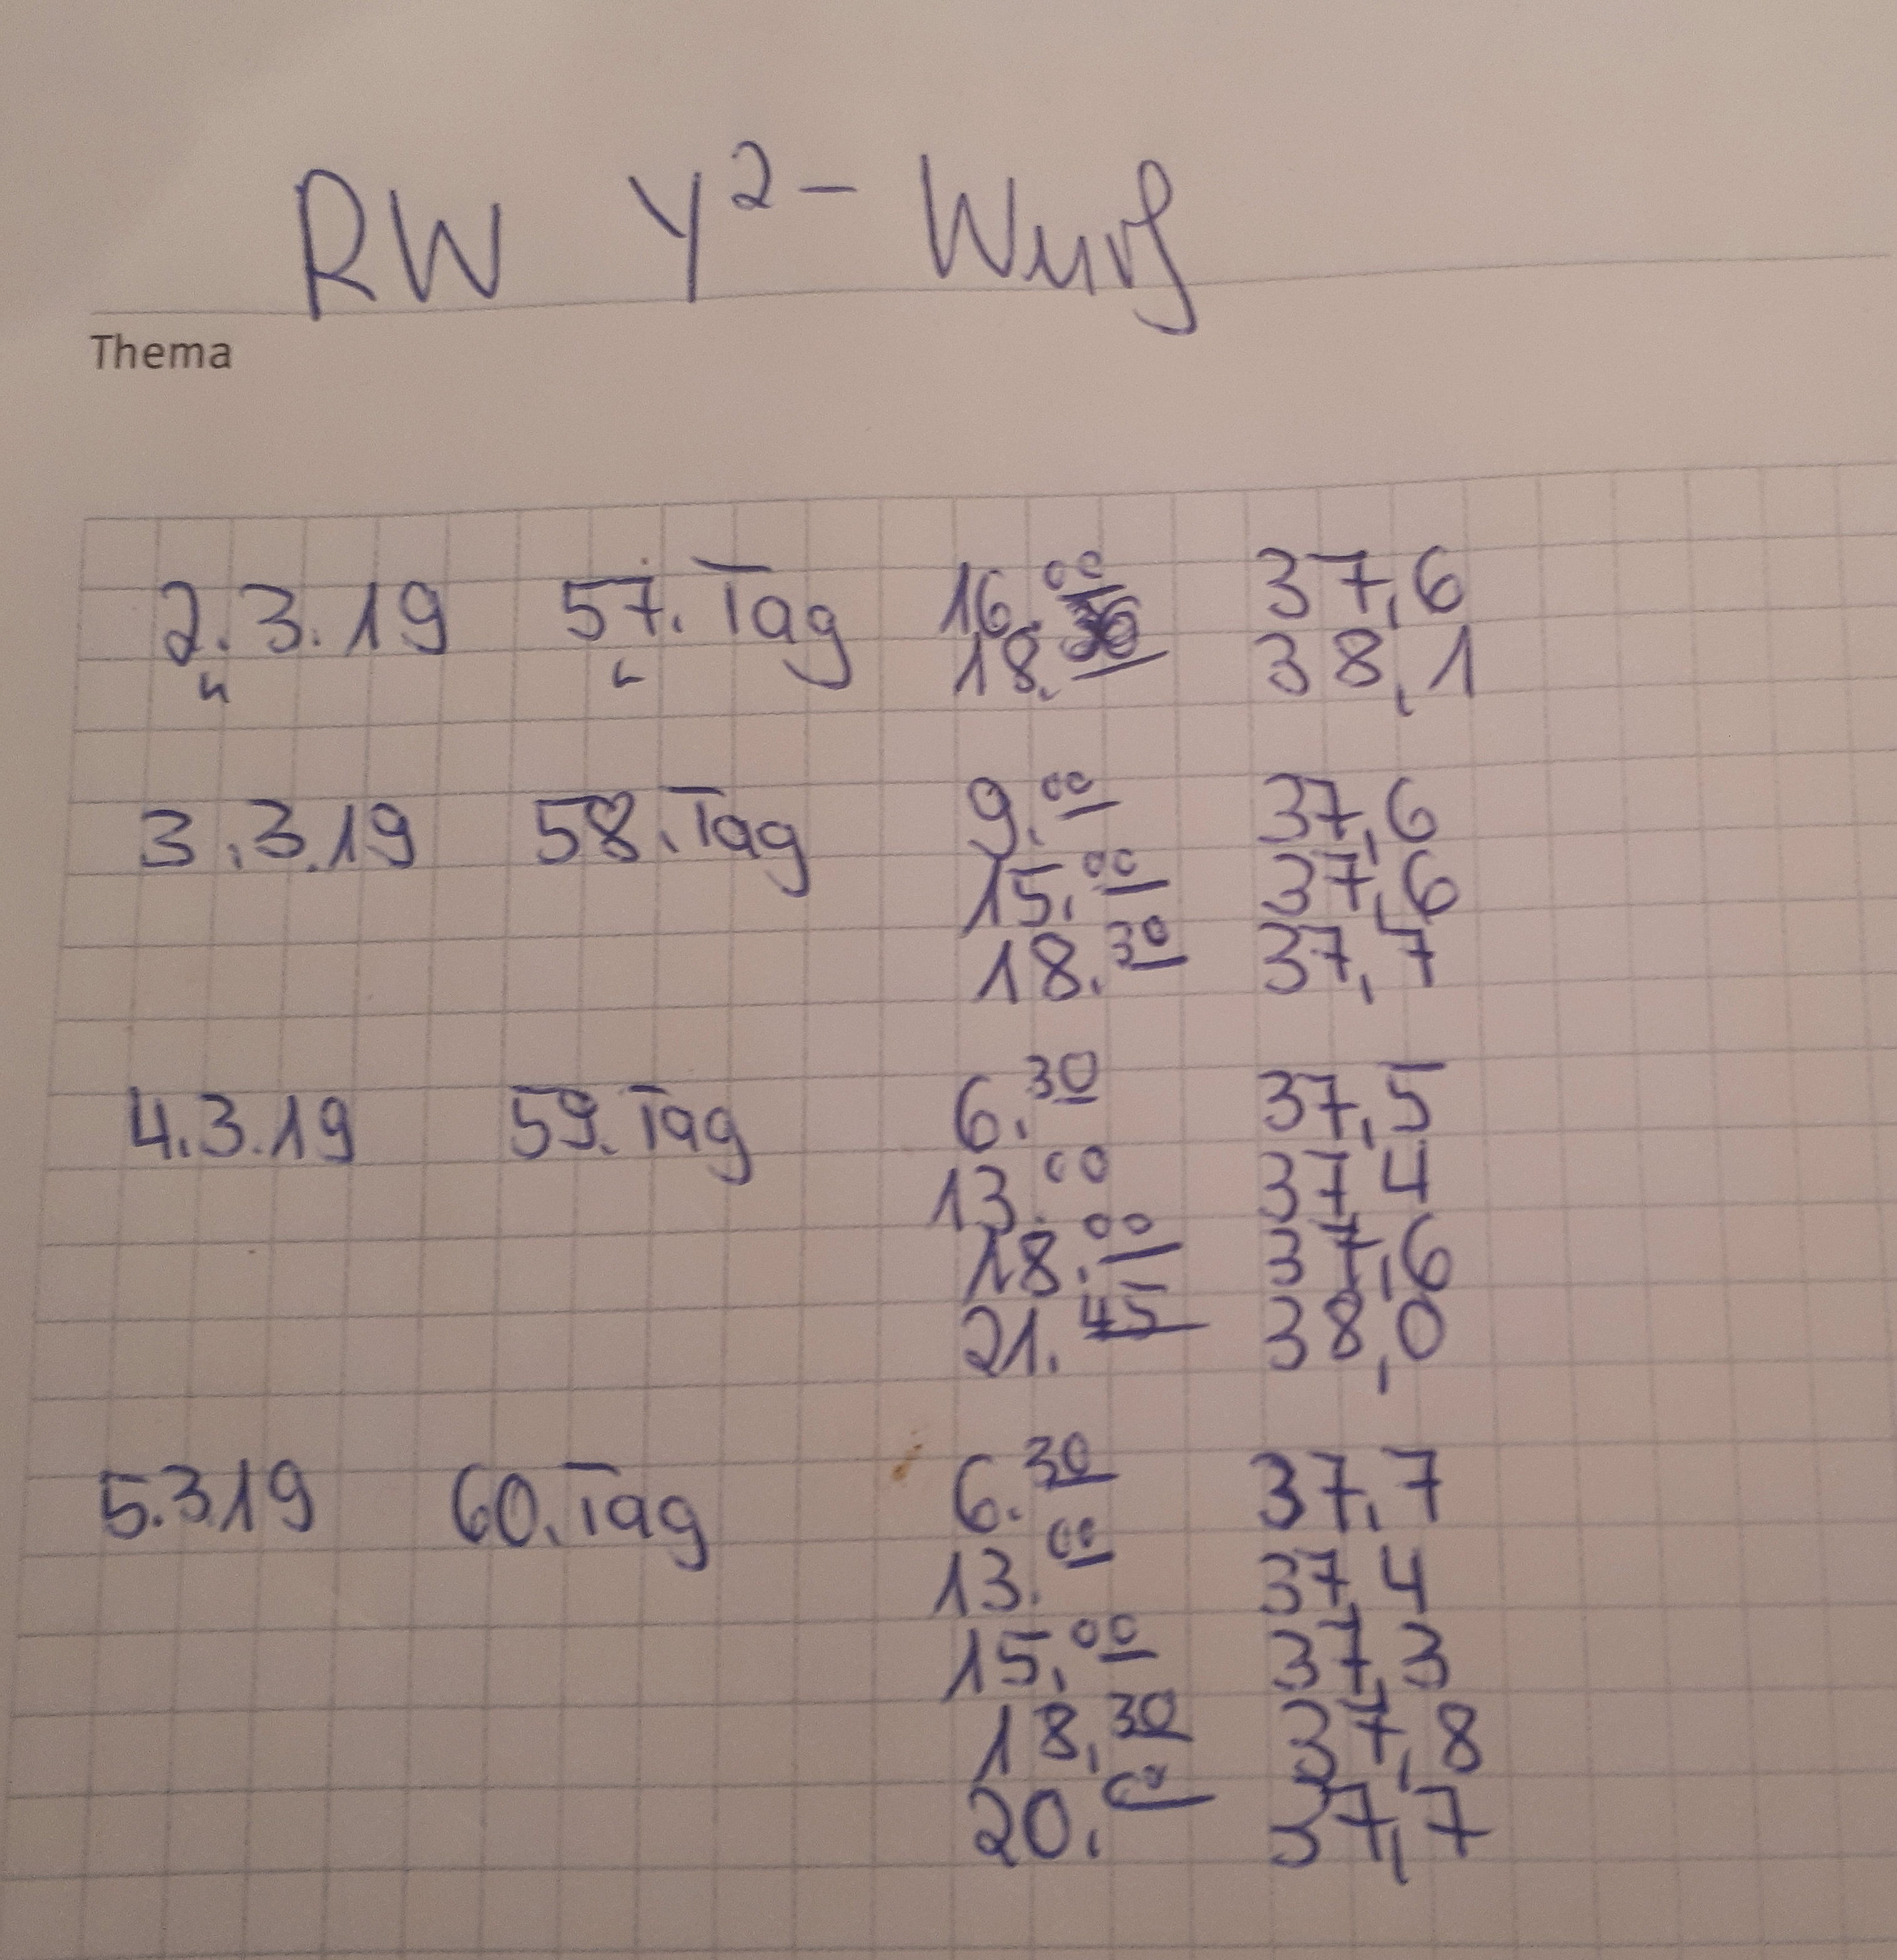 RW Y²- Wurf
Thema
2.3.19 57. Tag 16.00 37,6
" " 18.30 38,1
3.3.19 58. Tag 9.00 37,6
15.00 37,6
18.30 37,7
4.3.19 59. Tag 6.30 37,5
13.00 37,4
18.00 37,6
21.45 38,0
5.3.19 60. Tag 6.30 37,7
13.00 37,4
15.00 37,3
18.30 37,8
20.00 37,7